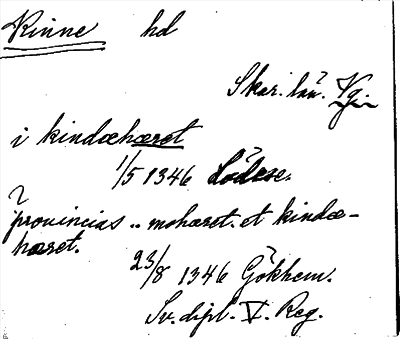 Kinne hd
Skar. län. Vg
i kindæhæret
1/5 1346 Lödese.
provincias .. mohæret. et kindæ-
hæret.
23/8 1346 Gökhem.
Sv. dipl. V. Reg.